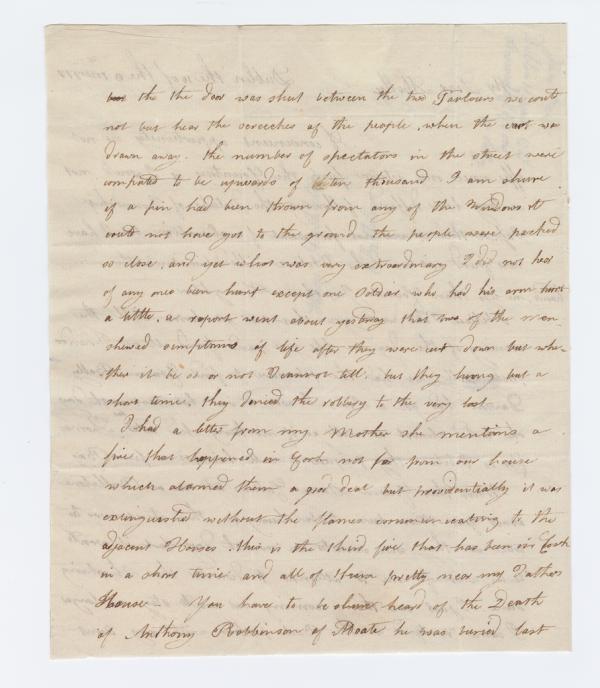 the the door was shut between the two Parlours we coud
not but hear the screeches of the people, when the cart was
drawn away. the number of spectators in the street were
computed to be upwards of ten thousand I am shure
if a pin had been thrown from any of the Windows it
coud not have got to the ground the people were packed
so close, and yet what was very extraordinary I did not hear
of any ones been hurt except one Soldier who had his arm hurt
a little. a report went about yesterday that two of the men
shewed simptoms of life after they were cut down but whe-
ther it be so or not I cannot tell. but they hung but a
short time. they denied the robbery to the very last
I had a letter from my Mother she mentions a
fire that happened in Cork not far from our house
which alarmed them a good deal but providentially it was
extinguished without the flames communicating to the
adjacent Houses. this is the third fire that has been in Cork
in a short time and all of them pretty near my Fathers
House - You have to be shure heard of the Death
of Anthony Robbinson of Moate he was buried last